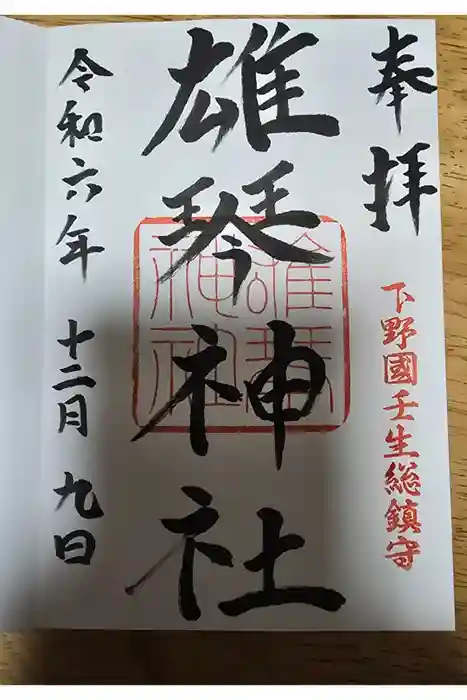 奉拝
下野國壬生総鎮守
雄琴神社
雄琴神社
令和六年 十二月 九日